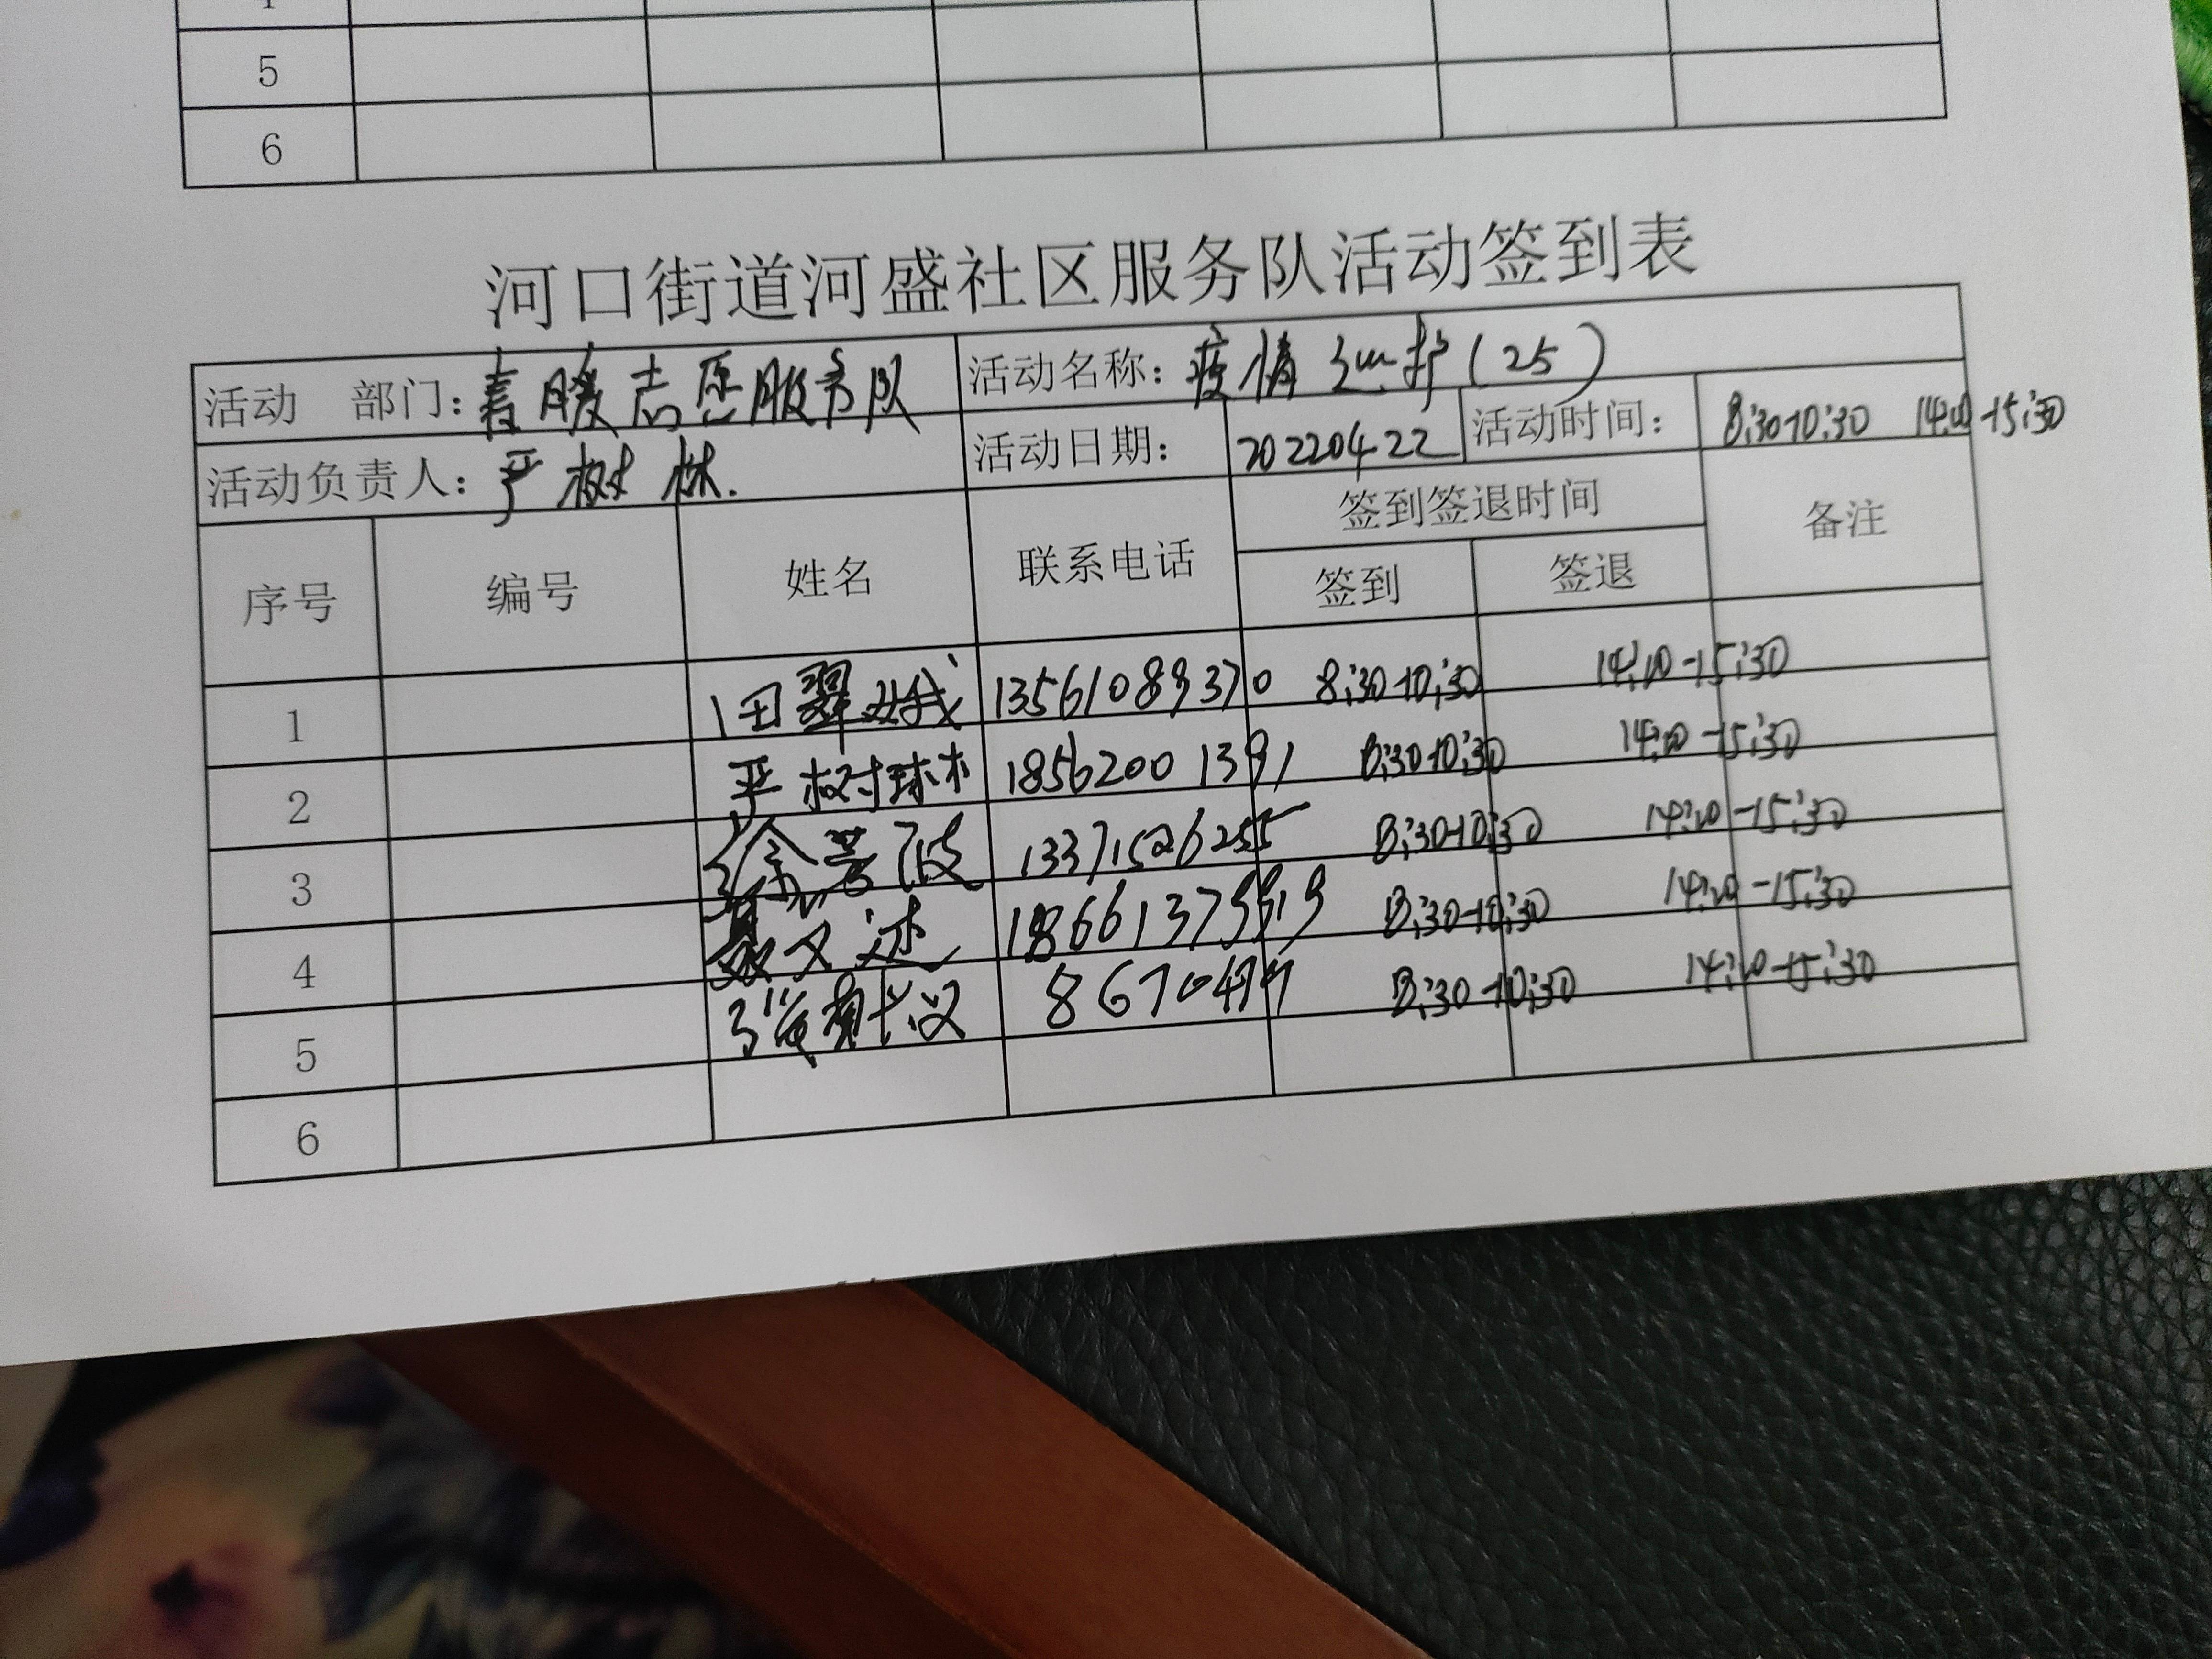 5
6
河口街道河盛社区服务队活动签到表
活动 部门：春暖志愿服务队 活动名称：疫情 (25)
活动负责人：严树林. 活动日期：20220422 活动时间：8:30-10:30 14:00-15:30
序号 编号 姓名 联系电话 签到签退时间 备注
签到 签退
1 田翠娥 13561089370 8:30-10:30 14:00-15:30
2 严树林 18562001391 8:30-10:30 14:00-15:30
3 13371526255 8:30-10:30 14:00-15:30
4 8:30-10:30 14:00-15:30
5 8:30-10:30 14:00-15:30
6